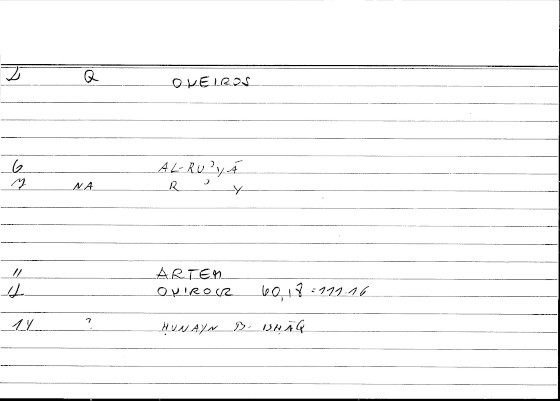 Q ONEIROS
6 AL-RUʾYĀ
NA R ʾ Y
" ARTEM
ONIROCR 60,18 = 111.16
14 ? ḤUNAYN B. ISḤĀQ